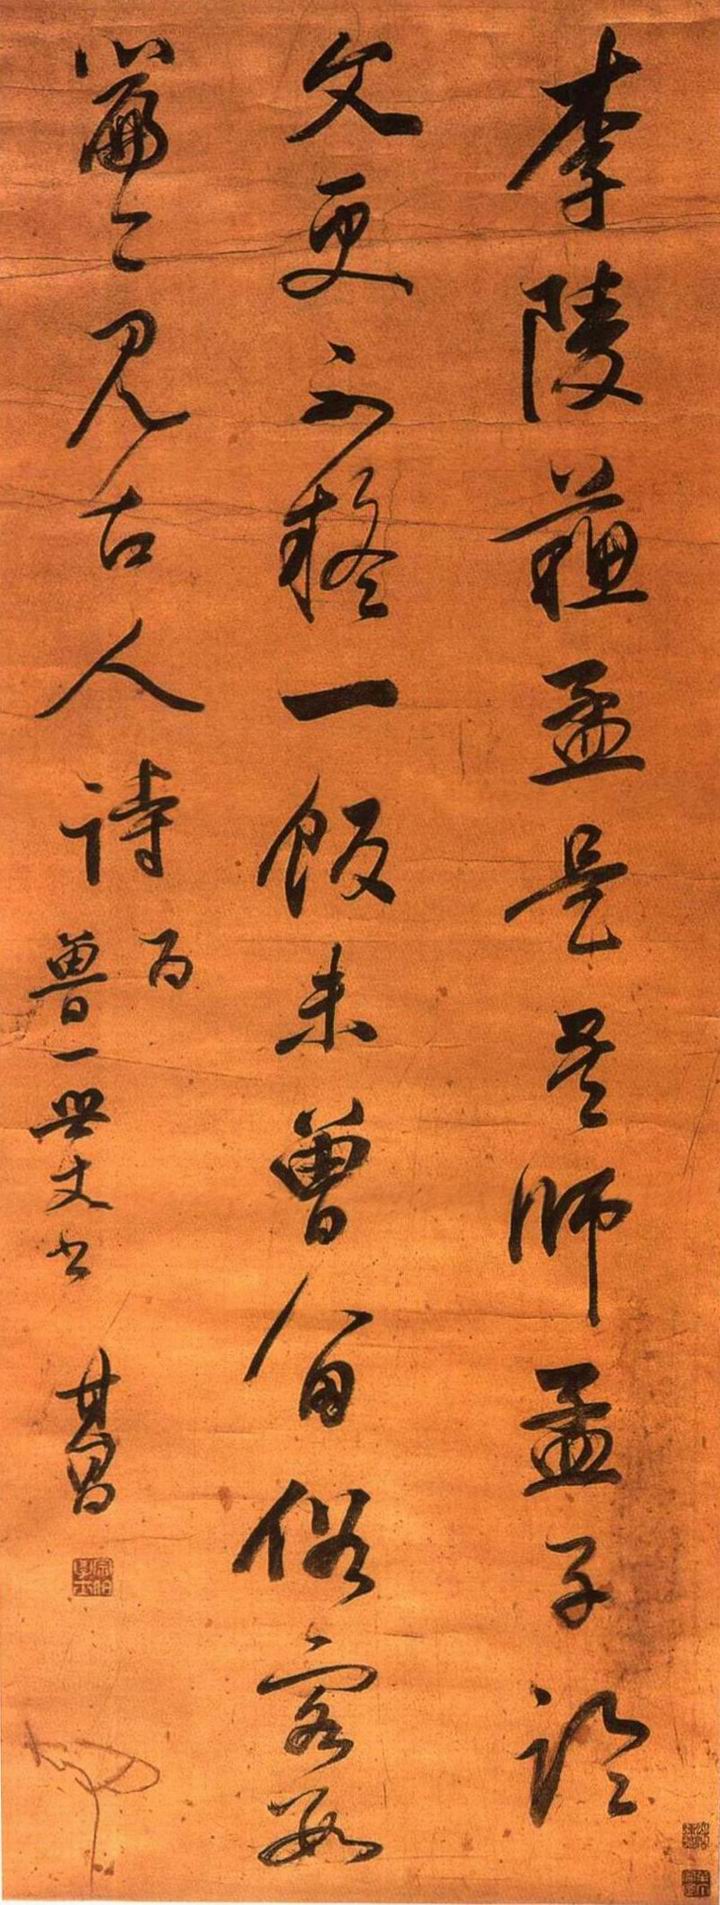 李陵蘇孟是吾師孟子論
文更不疑一飯未曾留俗客數
篇今見古人詩為
魯一世丈書 其昌